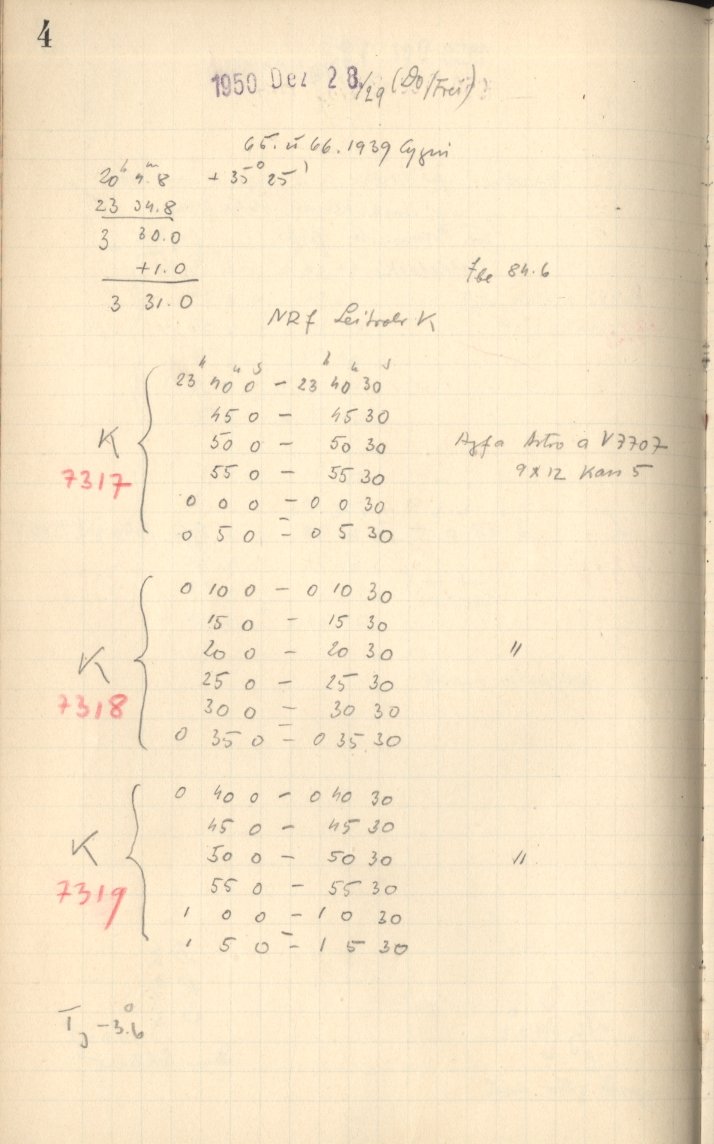 4
1950 Dez 28/29 (Do/Frei)
65. u 66. 1939 Cygni
20ʰ 4ᵐ.8 + 35° 25'
23 34.8
3 30.0
+1.0
3 31.0
84.6
NRf Leitrohr K
23ʰ 40ᵐ 0ˢ – 23ʰ 40ᵐ 30ˢ
45 0 – 45 30
K 50 0 – 50 30 Agfa Astro a V7707
7317 55 0 – 55 30 9x12 Kass 5
0 0 0 – 0 0 30
0 5 0 – 0 5 30
0 10 0 – 0 10 30
15 0 – 15 30
K 20 0 – 20 30 "
25 0 – 25 30
7318 30 0 – 30 30
0 35 0 – 0 35 30
0 40 0 – 0 40 30
45 0 – 45 30
K 50 0 – 50 30 "
7319 55 0 – 55 30
1 0 0 – 1 0 30
1 5 0 – 1 5 30
–3.°6